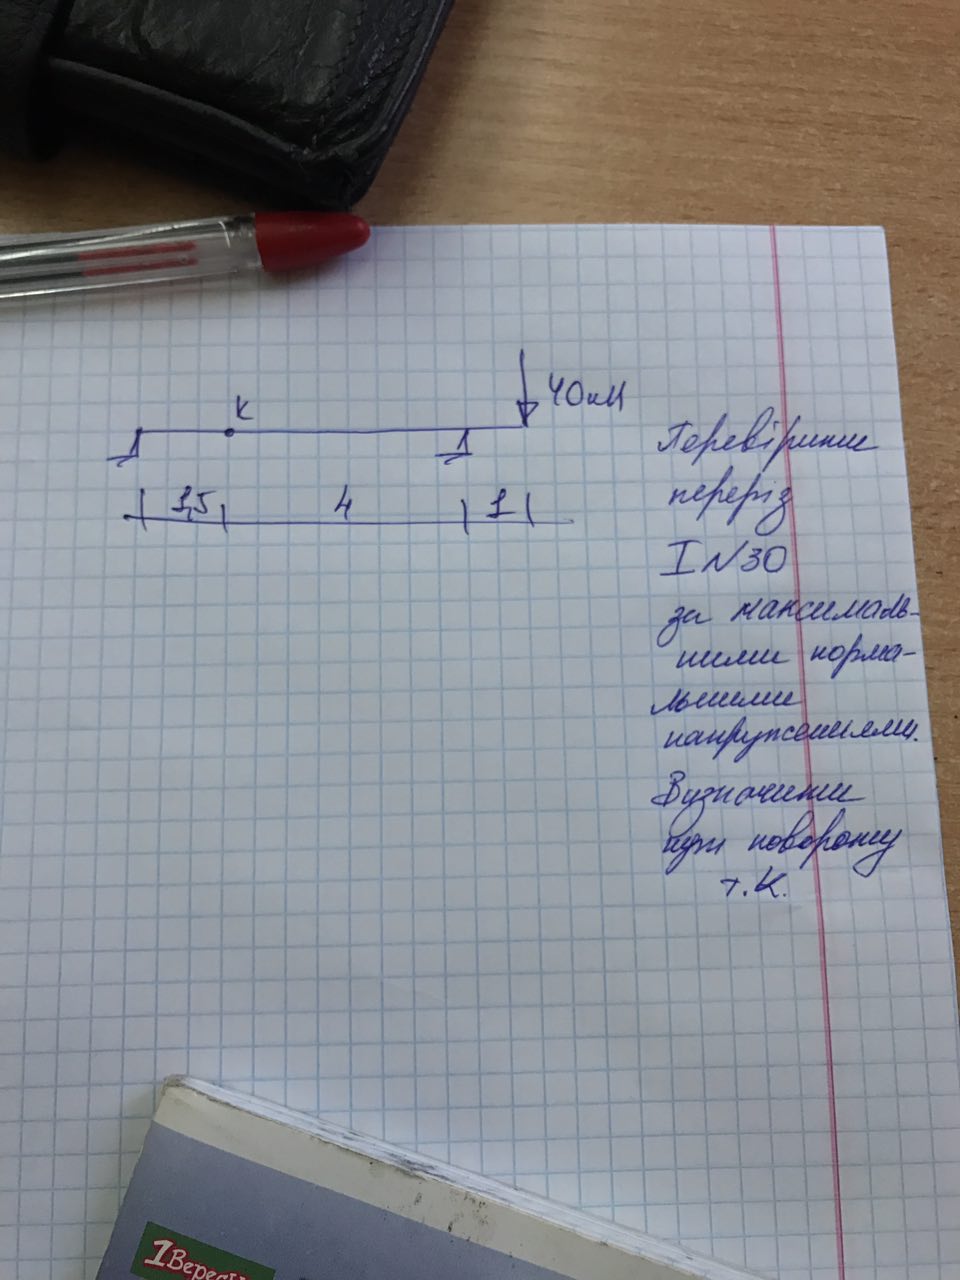 К
40кН
1,5
4
1
Перевірити
переріз
I N30
за максималь-
ними норма-
льними
напруженнями.
Визначити
кут повороту
т. К.
1 Вересня